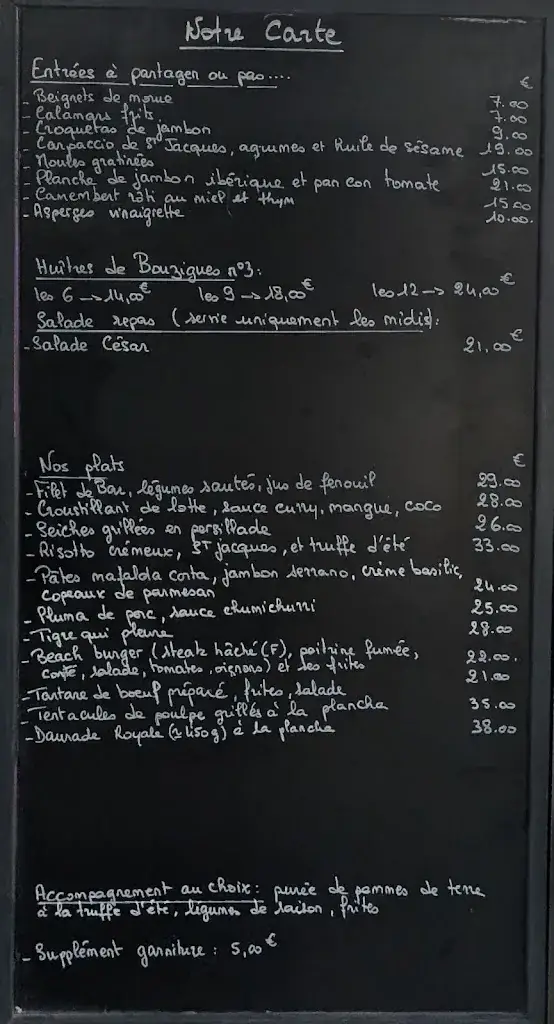 Notre Carte
Entrées à partager ou pas....
€
- Beignets de morue 7.00
- Calamars frits 7.00
- Croquetas de jambon 9.00
- Carpaccio de St Jacques, agrumes et huile de sésame 19.00
- Moules gratinées 15.00
- Planche de jambon ibérique et pan con tomate 21.00
- Camembert rôti au miel et thym 15.00
- Asperges vinaigrette 10.00.
Huîtres de Bouzigues n°3:
les 6 -> 14,00€ les 9 -> 18,00€ les 12 -> 24,00€
Salade repas (servie uniquement les midis):
- Salade César 21,00€
Nos plats €
- Filet de Bar, légumes sautés, jus de fenouil 29.00
- Croustillant de lotte, sauce curry, mangue, coco 28.00
- Seiches grillées en persillade 26.00
- Risotto crémeux, ST jacques, et truffe d'été 33.00
- Pâtes mafalda corta, jambon serrano, crème basilic,
copeaux de parmesan 24.00
- Pluma de porc, sauce chumichurri 25.00
- Tigre qui pleure 28.00
- Beach burger (steak hâché (F), poitrine fumée, 22.00.
comté, salade, tomates, oignons) et des frites
- Tartare de boeuf préparé, frites, salade 21.00
- Tentacules de poulpe grillés à la plancha 35.00
- Daurade Royale (≈450g) à la plancha 38.00
Accompagnement au choix: purée de pommes de terre
à la truffe d'été, légumes de saison, frites
- Supplément garniture : 5,00€